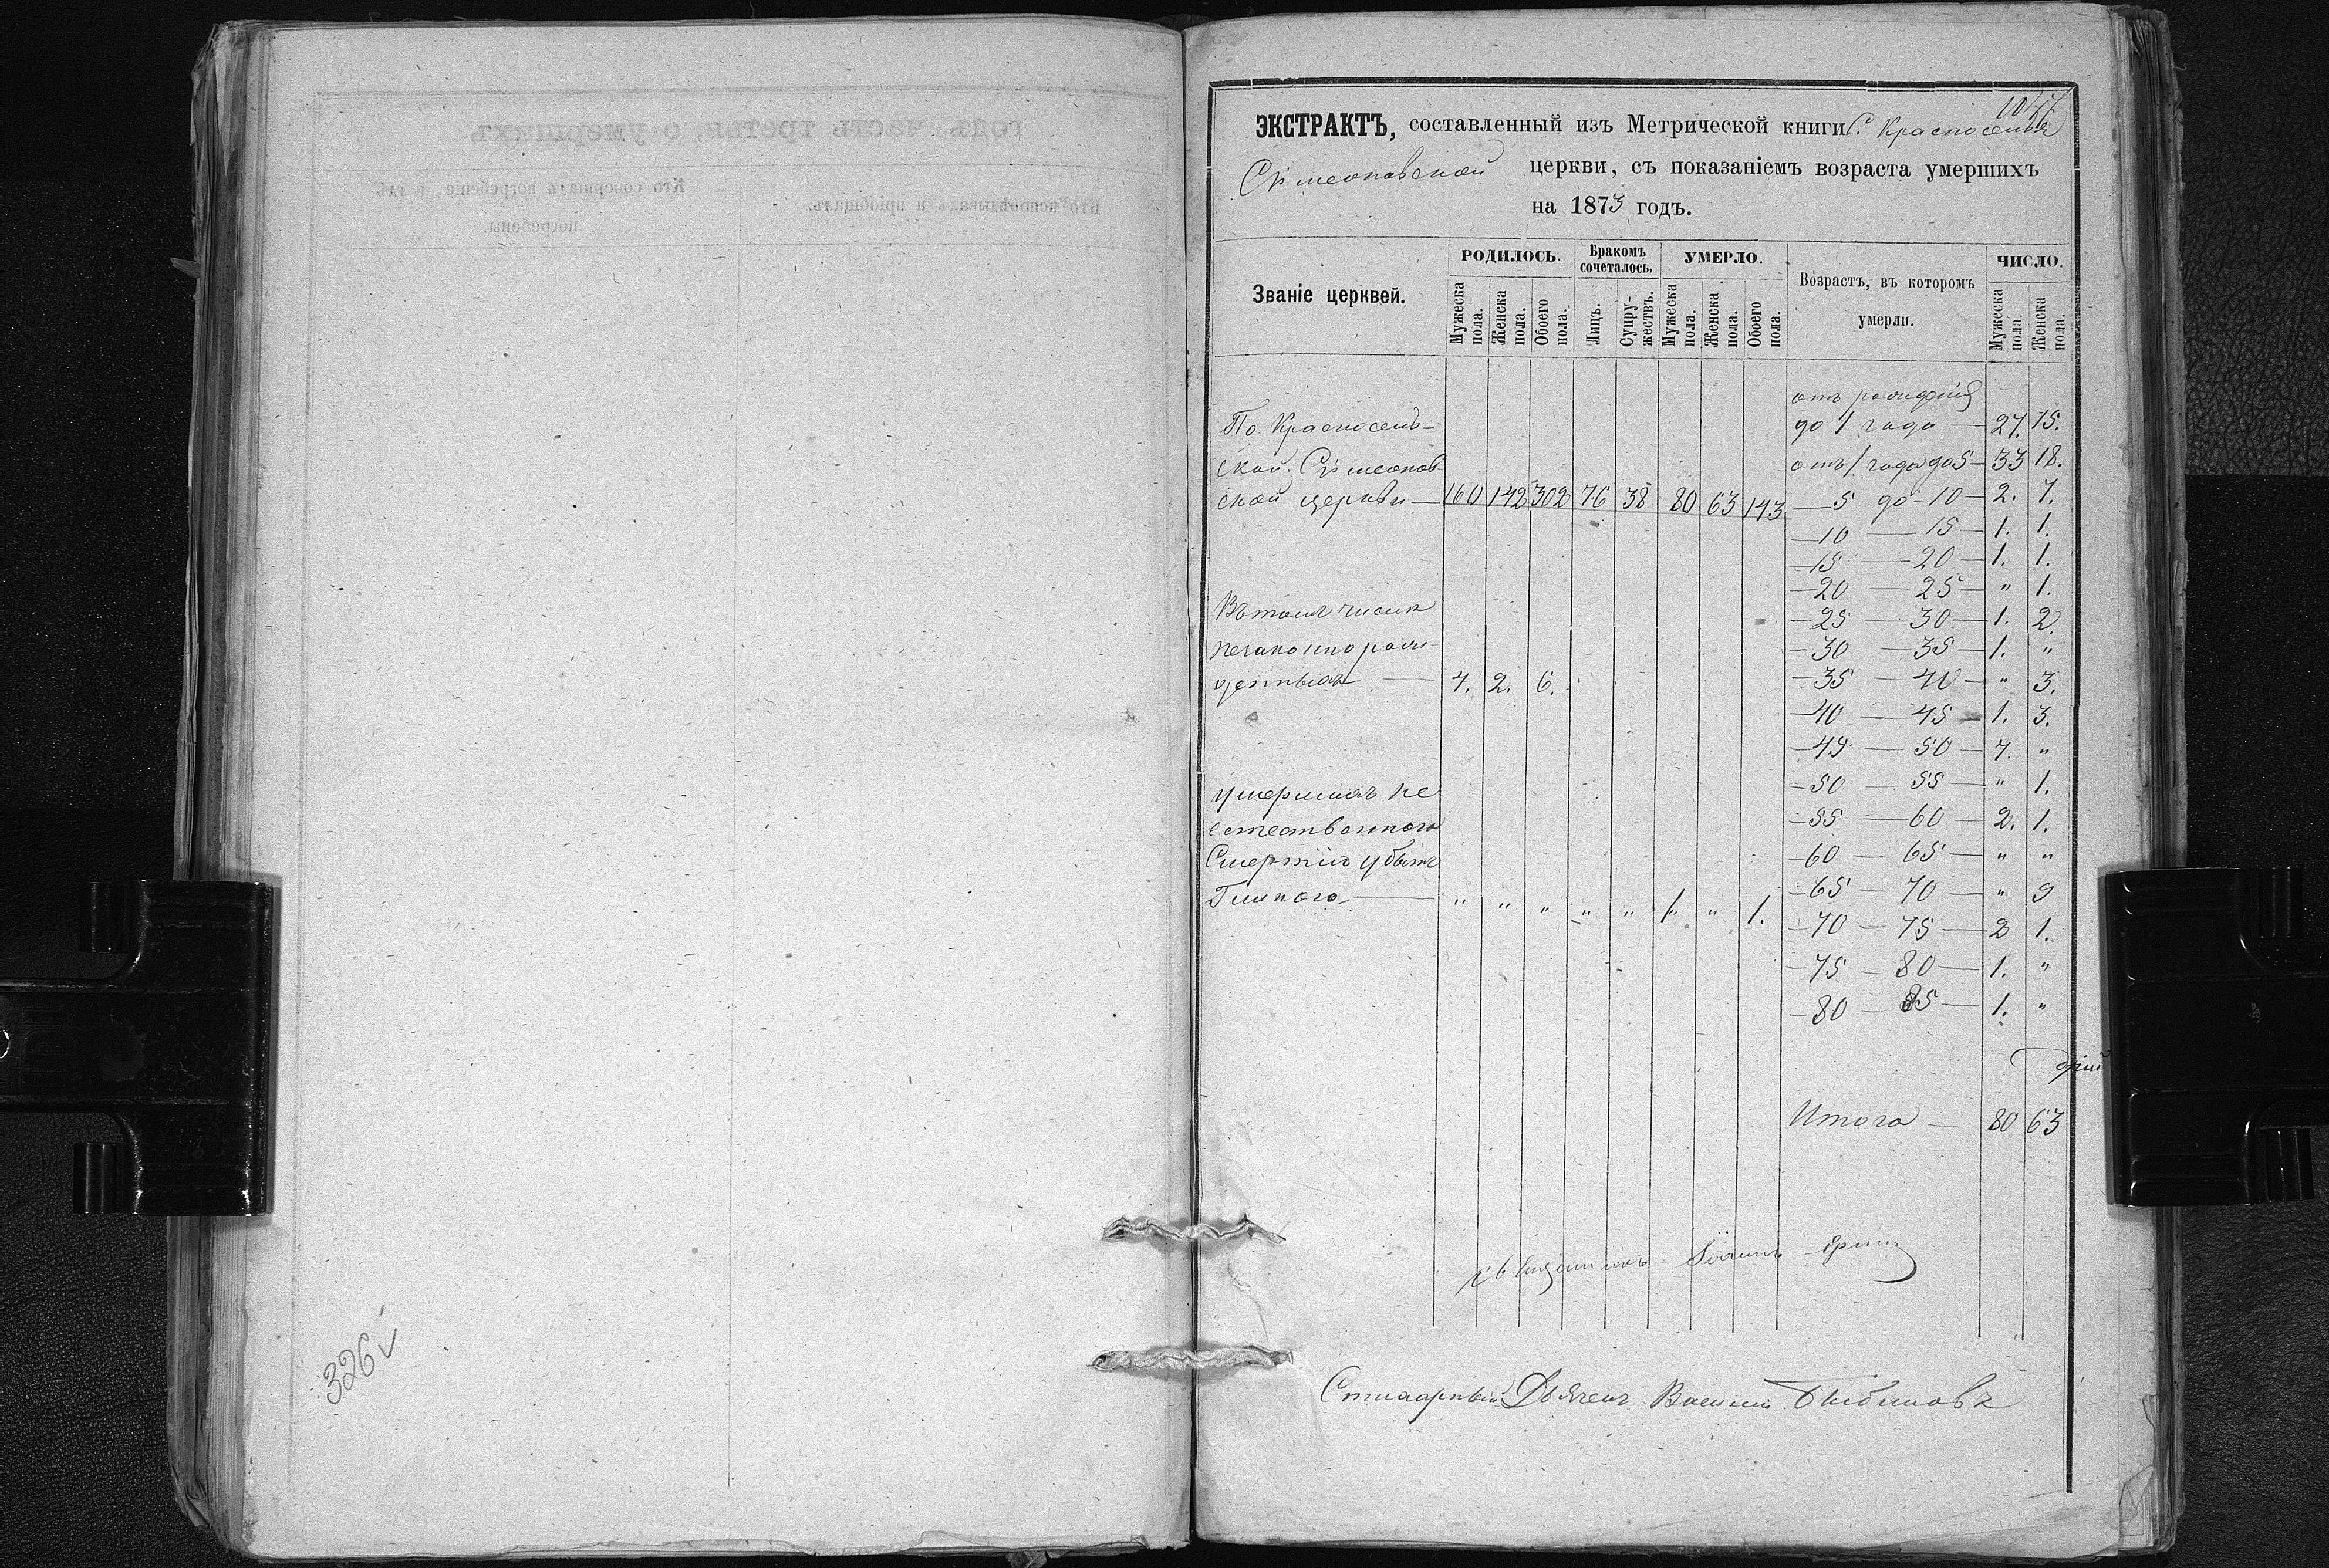 326
1037
ЭКСТРАКТЪ, составленный изъ Метрической книги С. Красносельа
Сѵмеоновской церкви, съ показаніемъ возраста умершихъ
на 1873 годъ.
Званіе церквей.
РОДИЛОСЬ.
Бракомъ сочеталось.
УМЕРЛО.
Возрастъ, въ которомъ умерли.
ЧИСЛО.
Мужеска пола. Женска пола. Обоего пола. Лицъ. Супружествъ. Мужеска пола. Женска пола. Обоего пола. Мужеска пола. Женска пола.
отъ рожденія
По Красносель-
до 1 года — 27. 15.
ской Сѵмеонов-
отъ 1 года до 5 — 33 18.
ской церкви — 160 142 302 76 38 80 63 143
— 5 до 10 — 2. 7.
— 10 — 15 — 1. 1.
— 15 — 20 — 1. 1.
— 20 — 25 — " 1.
Въ томъ числѣ
— 25 — 30 — 1. 2.
незаконнорож-
— 30 — 35 — 1. "
денныхъ — 4. 2. 6.
— 35 — 40 — " 3.
— 40 — 45 — 1. 3.
— 45 — 50 — 7. "
— 50 — 55 — " 1.
умершихъ не
— 55 — 60 — 2. 1.
естественною
— 60 — 65 — " "
Смертію
— 65 — 70 — " 9
" " " " " 1. " 1.
— 70 — 75 — 2 1.
— 75 — 80 — 1. "
— 80 — 85 — 1. "
Итого — 80 63
Священникъ Іоаннъ
Стихарный Дьячекъ Василій